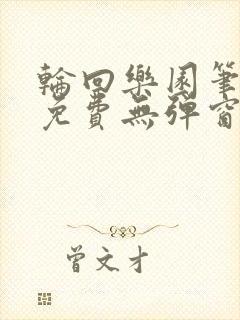 輪回樂園筆
免費無彈窗
曾文才